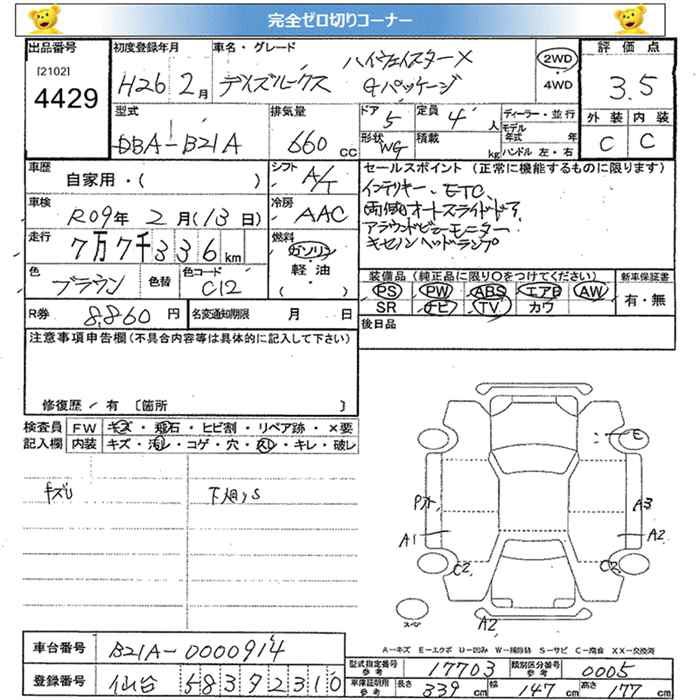 完全ゼロ切りコーナー
出品番号
[2102]
4429
初度登録年月
H26 2月
車名・グレード
デイズルークス ハイウェイスターX
Gパッケージ
2WD
・
4WD
評価点
3.5
外装 内装
C C
型式
DBA-B21A
排気量
660 cc
ドア 5
定員 4 人
形状 WG
積載 kg
ディーラー・並行
モデル年式 年
ハンドル 左・右
車歴
自家用・( )
シフト A/T
セールスポイント (正常に機能するものに限ります)
インテリキー、ETC
両側オートスライドドア
アラウンドビューモニター
キセノンヘッドランプ
車検
R09年 2月(13日)
冷房 AAC
走行
7万7千336km
燃料
ガソリン
軽油
( ・ )
色
ブラウン
色替
色コード
C12
装備品 (純正品に限り○をつけてください)
PS PW ABS エアB AW
SR ナビ TV カワ
新車保証書
有・無
R券 8,860円
名変通知期限 月 日
後日品
注意事項申告欄(不具合内容等は具体的に記入して下さい)
修復歴/有 〔箇所 〕
検査員記入欄
FW キズ・飛石・ヒビ割・リペア跡・×要
内装 キズ・汚レ・コゲ・穴・スレ・キレ・破レ
キズU
下廻りS
E
A3
A1
A2
C2
C2
スペア
A2
A-キズ E-エクボ U-凹み W-補修跡 S-サビ C-腐食 XX-交換済
車台番号 B21A-0000914
登録番号 仙台 58392310
型式指定番号 参考 17703
類別区分番号 参考 0005
車庫証明用 参考 長さ 339cm 幅 147cm 高さ 177cm